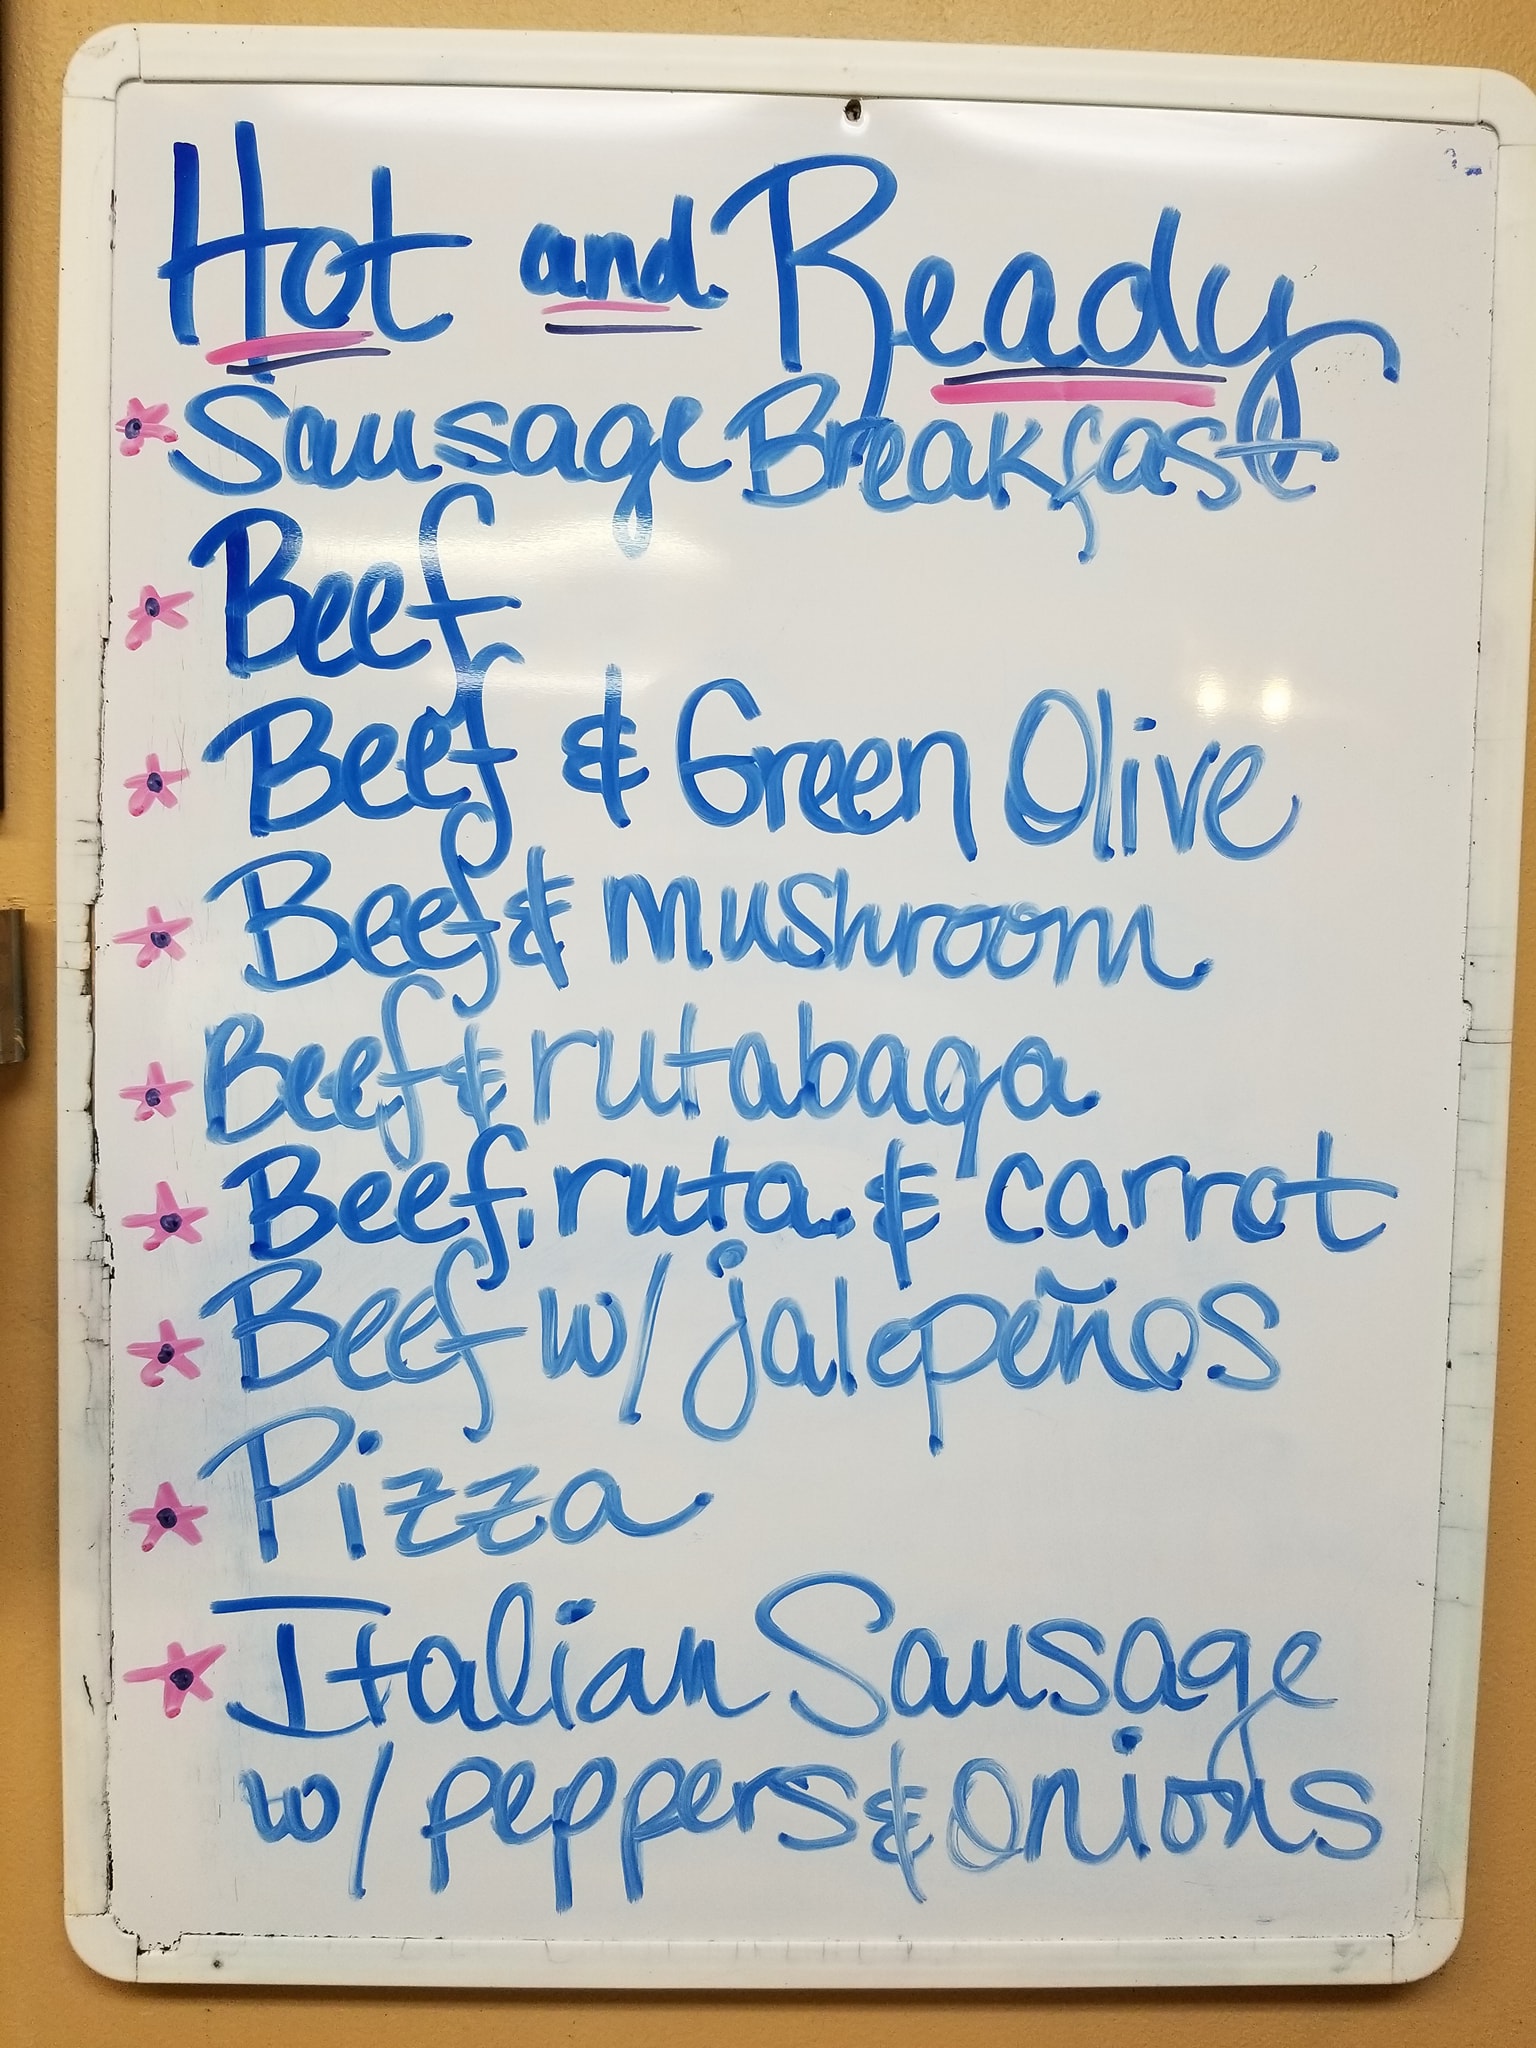 Hot and Ready
Sausage Breakfast
Beef
Beef & Green Olive
Beef & mushroom
Beef & rutabaga
Beef, ruta. & carrot
Beef w/ jalepeños
Pizza
Italian Sausage
w/ peppers & onions